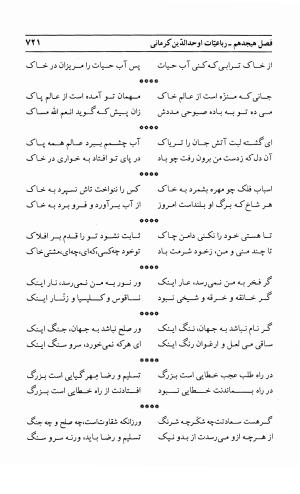 فصل هیجدهم ـ رباعیّات اوحدالدّین کرمانی ۷۲۱
از خاک ترابی که کنی آب حیات پس آب حیات را مریزان در خاک
****
جانی که منزّه است از عالم خاک مهمان تو آمده است از عالم پاک
می ده تو به باده صبوحی مددش زان پیش که گوید انعم الله مساک
****
ای گشته لبت آتش جان را تریاک آب چشمم ببرد عالم همه پاک
آن دل که زدست من برون رفت چو باد در پای تو افتاد به خواری در خاک
****
اسباب فلک چو مهره بشمرد به خاک کس را ننواخت تاش نسپرد به خاک
هر شاخ که برگ او بلنداست امروز از آب برآورد و فرو برد به خاک
****
تا هستی خود را نکنی دامن چاک ثابت نشود تو را قدم بر افلاک
تا چند منی و من، زخود شرمت باد توخود چه‌کسی،که‌ای،چه‌ای،مشتی‌خاک
****
گر فخر به من نمی‌رسد، عار اینک ور نور به من نمی‌رسد، نار اینک
گر خانقه و خرقه و شیخی نبود ناقوس و کلیسیا و زنّار اینک
****
گر نام نباشد به جهان، ننگ اینک ور صلح نباشد به جهان، جنگ اینک
ساقی می لعل و ارغوان رنگ اینک ای هرکه نمی‌خورد، سرو سنگ اینک
****
در راه طلب عجب خطایی است بزرگ تسلیم و رضا مهرگیایی است بزرگ
در راه بماندنت خطایی نبود افتادنت از راه خطایی است بزرگ
****
گرهست سعادت‌چه شکرچه شرنگ ورزانکه شقاوت‌است،چه صلح و چه جنگ
از هرچه ازو می‌رسدت از بدو نیک تسلیم و رضا باید، ورنه سرو سنگ